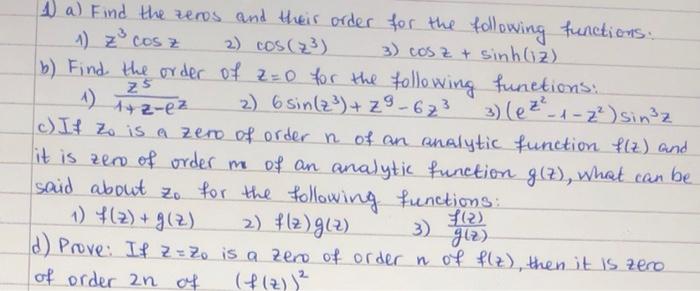 1) a) Find the zeros and their order for the following functions:
1) z³ cos z 2) cos(z³) 3) cos z + sinh(iz)
b) Find the order of z=0 for the following functions:
1) z⁵/(1+z-e^z) 2) 6 sin(z³) + z⁹ - 6z³ 3) (e^z² - 1 - z²) sin³z
c) If z₀ is a zero of order n of an analytic function f(z) and
it is zero of order m of an analytic function g(z), what can be
said about z₀ for the following functions:
1) f(z) + g(z) 2) f(z)g(z) 3) f(z)/g(z)
d) Prove: If z=z₀ is a zero of order n of f(z), then it is zero
of order 2n of (f(z))²